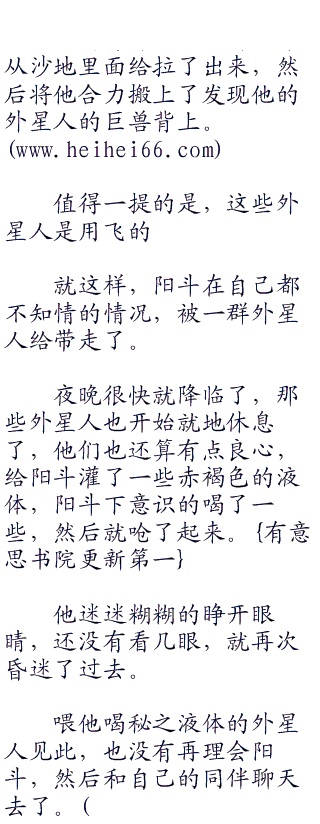 从沙地里面给拉了出来，然
后将他合力搬上了发现他的
外星人的巨兽背上。
(www.heihei66.com)
值得一提的是，这些外
星人是用飞的
就这样，阳斗在自己都
不知情的情况，被一群外星
人给带走了。
夜晚很快就降临了，那
些外星人也开始就地休息
了，他们也还算有点良心，
给阳斗灌了一些赤褐色的液
体，阳斗下意识的喝了一
些，然后就呛了起来。{有意
思书院更新第一}
他迷迷糊糊的睁开眼
睛，还没有看几眼，就再次
昏迷了过去。
喂他喝秘之液体的外星
人见此，也没有再理会阳
斗，然后和自己的同伴聊天
去了。(